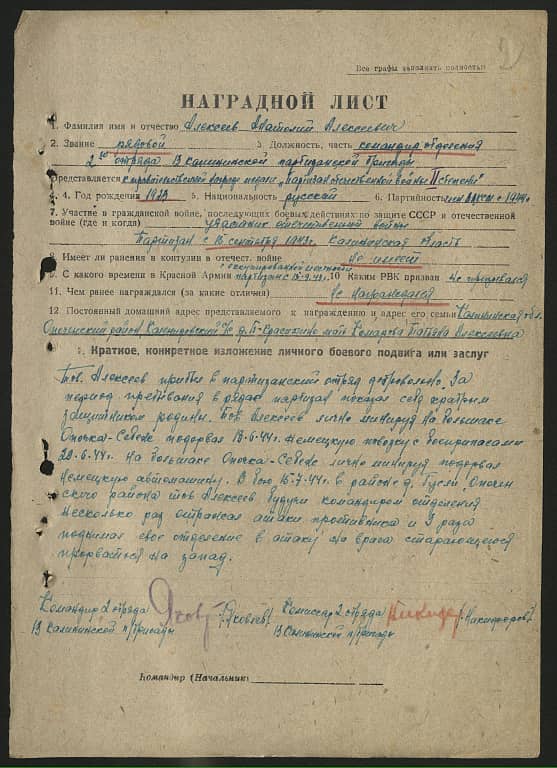 2
Все графы заполнять полностью
НАГРАДНОЙ ЛИСТ
1. Фамилия имя и отчество Алексеев Анатолий Алексеевич
2. Звание рядовой 3. Должность, часть командир отделения
2го отряда 13 Калининской партизанской бригады
Представляется к правительственной награде медали „Партизан отечественной войны II степени"
4. Год рождения 1923 5. Национальность русский 6. Партийность член ВЛКСМ с 1944г
7. Участие в гражданской войне, последующих боевых действиях по защите СССР и отечественной
войне (где и когда) участник отечественной войны
Партизан с 16 сентября 1943г. Калининская область
8. Имеет ли ранения и контузии в отечест. войне не имеет
9. С какого времени в Красной Армии партизан с 16.9.43г. 10 Каким РВК призван не призывался
11. Чем ранее награждался (за какие отличия) не награждался
12 Постоянный домашний адрес представляемого к награждению и адрес его семьи Калининская обл.
Опочецкий район мать Комарова Татьяна Алексеевна
1. Краткое, конкретное изложение личного боевого подвига или заслуг
Тов. Алексеев прибыл в партизанский отряд добровольно. За
период пребывания в рядах партизан показал себя храбрым
защитником родины. Тов. Алексеев лично минируя на большаке
Опочка-Себеж подорвал 13-6-44г. немецкую повозку с боеприпасами
22-6-44г. на большаке Опочка-Себеж лично минируя подорвал
немецкую автомашину. В бою 15-7-44г. в районе д. Гусли Опочец
кого района тов Алексеев будучи командиром отделения
несколько раз отражал атаки противника и 3 раза
поднимал свое отделение в атаку на врага старающегося
прорваться на запад.
Командир 2 отряда Яков /Яковлев/ Комиссар 2 отряда Никифор /Никифоров/
13 Калининской п/бригады 13 Калининской п/бригады
Командир (Начальник)